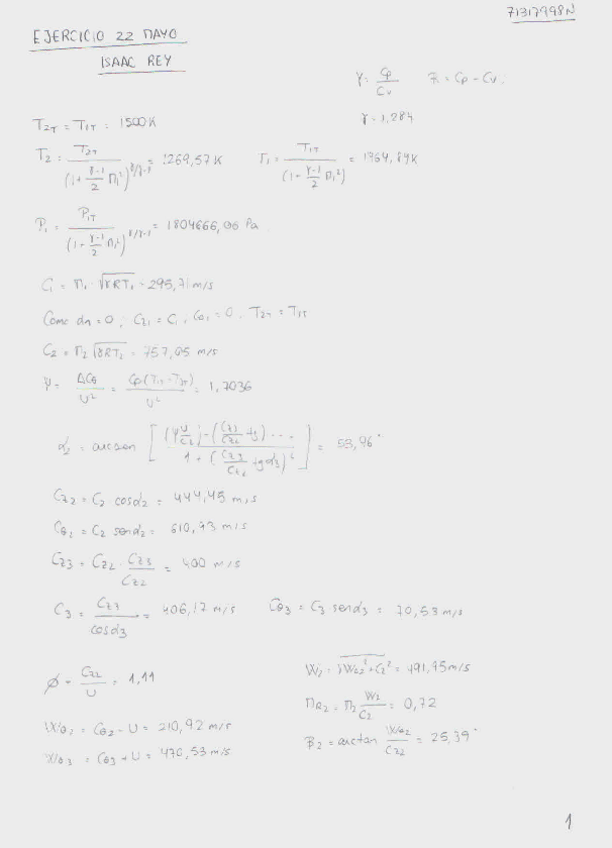 71317998N
EJERCICIO 22 MAYO
ISAAC REY
γ = Cp/Cv   R = Cp - Cv
γ = 1,284
T2T = T1T = 1500K
T2 = T2T/(1 + (γ-1)/2 M1²)^γ/γ-1 = 1269,57 K   T1 = T1T/(1 + (γ-1)/2 M1²) = 1464,84K
P1 = P1T/(1 + (γ-1)/2 M1²)^γ/γ-1 = 1804666,06 Pa
C1 = M1 · √γRT1 = 295,71 m/s
Como α1 = 0 ; Cz1 = C1 , Cθ1 = 0 , T2T = T1T
C2 = M2 √γRT2 = 757,05 m/s
Ψ = ΔCθ/U² = Cp(T1T - T3T)/U² = 1,7036
α2 = arcsen [ (Ψ U/C2) - (Cz3/Cz2 tg) .... / 1 + (Cz3/Cz2 tgα3)² ] = 53,96°
Cz2 = C2 cosα2 = 444,45 m/s
Cθ2 = C2 senα2 = 610,93 m/s
Cz3 = Cz2 · Cz3/Cz2 = 400 m/s
C3 = Cz3/cosα3 = 406,17 m/s   Cθ3 = C3 senα3 = 70,53 m/s
φ = Cz2/U = 1,11   W2 = √Wθ2² + Cz² = 491,95 m/s
MR2 = M2 W2/C2 = 0,72
Wθ2 = Cθ2 - U = 210,92 m/s   β2 = arctan Wθ2/Cz2 = 25,39°
Wθ3 = Cθ3 + U = 470,53 m/s
1